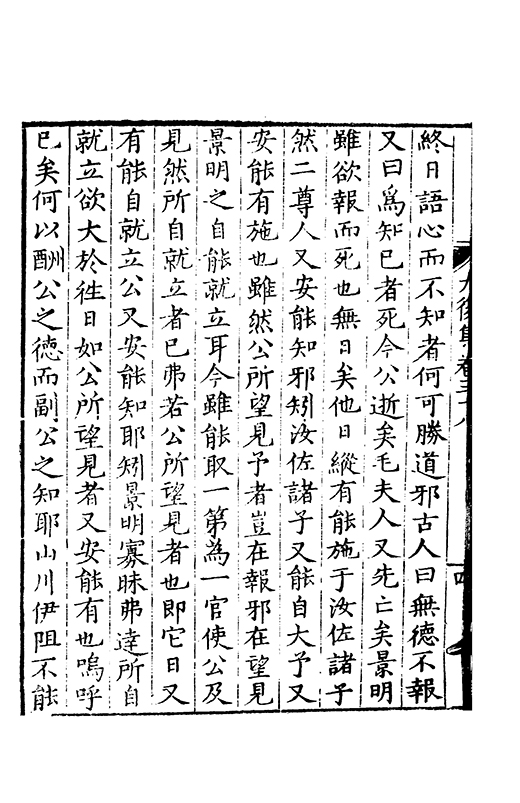 大復集 卷三十八
終日語心而不知者何可勝道邪古人曰無德不報
又曰爲知已者死今公逝矣毛夫人又先亡矣景明
雖欲報而死也無日矣他日縱有能施于汝佐諸子
然二尊人又安能知邪矧汝佐諸子又能自大予又
安能有施也雖然公所望見予者豈在報邪在望見
景明之自能就立耳今雖能取一第為一官使公及
見然所自就立者已弗若公所望見者也即它日又
有能自就立公又安能知耶矧景明寡昧弗達所自
就立欲大於徃日如公所望見者又安能有也嗚呼
已矣何以酬公之德而副公之知耶山川伊阻不能